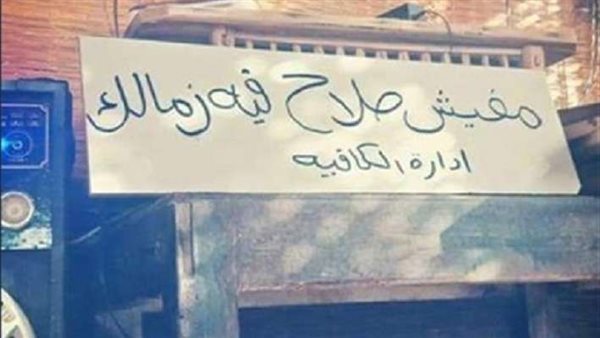 مفيش صلاح فيه زمالك
ادارة الكافيه